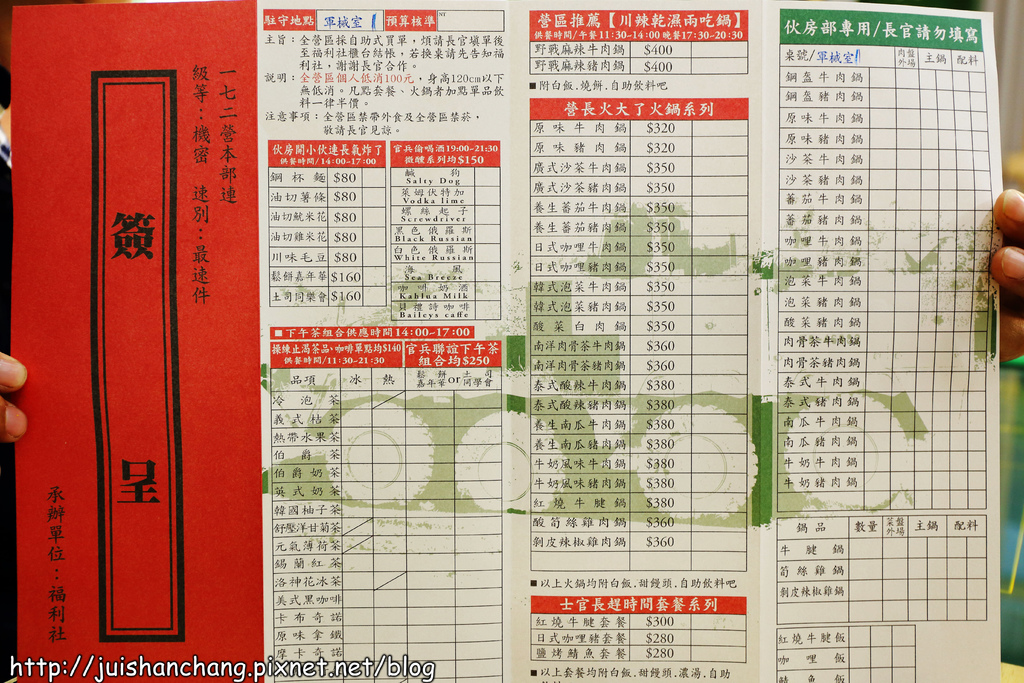 一七二營本部連
級等：機密　速別：最速件
簽
呈
承辦單位：福利社
駐守地點 軍械室1 預算核準 NT
主旨：全營區採自助式買單，煩請長官填單後
至福利社櫃台結帳，若換桌請先告知福
利社，謝謝長官合作。
說明：全營區個人低消100元，身高120cm以下
無低消。凡點套餐、火鍋者加點單品飲
料一律半價。
注意事項：全營區禁帶外食及全營區禁菸，
敬請長官見諒。
伙房開小伙連長氣炸了
供餐時間/14:00-17:00
鋼杯麵 $80
油切薯條 $80
油切魷米花 $80
油切雞米花 $80
川味毛豆 $80
鬆餅嘉年華 $160
土司同樂會 $160
官兵偷喝酒19:00-21:30
微醺系列均$150
鹹狗
Salty Dog
萊姆伏特加
Vodka lime
螺絲起子
Screwdriver
黑色俄羅斯
Black Russian
白色俄羅斯
White Russian
海風
Sea Breeze
咖啡奶酒
Kahlua Milk
貝禮詩咖啡
Baileys caffe
■下午茶組合供應時間14:00-17:00
操練止渴茶品、咖啡單點均$140
供餐時間/11:30-21:30
官兵聯誼下午茶
組合均$250
品項 冰 熱 鬆餅嘉年華or土司同學會
冷泡茶
義式枯茶
熱帶水果茶
伯爵茶
伯爵奶茶
英式奶茶
韓國柚子茶
舒壓洋甘菊茶
元氣薄荷茶
錫蘭紅茶
洛神花冰茶
美式黑咖啡
卡布奇諾
原味拿鐵
摩卡奇諾
營區推薦【川辣乾濕兩吃鍋】
供餐時間/午餐11:30-14:00 晚餐17:30-20:30
野戰麻辣牛肉鍋 $400
野戰麻辣豬肉鍋 $400
■附白飯,燒餅.自助飲料吧
營長火大了火鍋系列
原味牛肉鍋 $320
原味豬肉鍋 $320
廣式沙茶牛肉鍋 $350
廣式沙茶豬肉鍋 $350
養生蕃茄牛肉鍋 $350
養生蕃茄豬肉鍋 $350
日式咖哩牛肉鍋 $350
日式咖哩豬肉鍋 $350
韓式泡菜牛肉鍋 $350
韓式泡菜豬肉鍋 $350
酸菜白肉鍋 $350
南洋肉骨茶牛肉鍋 $360
南洋肉骨茶豬肉鍋 $360
泰式酸辣牛肉鍋 $380
泰式酸辣豬肉鍋 $380
養生南瓜牛肉鍋 $380
養生南瓜豬肉鍋 $380
牛奶風味牛肉鍋 $380
牛奶風味豬肉鍋 $380
紅燒牛腱鍋 $380
酸筍絲雞肉鍋 $360
剝皮辣椒雞肉鍋 $360
■以上火鍋均附白飯.甜饅頭.自助飲料吧
士官長趕時間套餐系列
紅燒牛腱套餐 $300
日式咖哩豬套餐 $280
鹽烤鯖魚套餐 $280
■以上套餐均附白飯.甜饅頭.濃湯.自助
伙房部專用/長官請勿填寫
桌號/軍械室1 肉盤外場 主鍋 配料
鋼盔牛肉鍋
鋼盔豬肉鍋
原味牛肉鍋
原味豬肉鍋
沙茶牛肉鍋
沙茶豬肉鍋
蕃茄牛肉鍋
蕃茄豬肉鍋
咖哩牛肉鍋
咖哩豬肉鍋
泡菜牛肉鍋
泡菜豬肉鍋
酸菜豬肉鍋
肉骨茶牛肉鍋
肉骨茶豬肉鍋
泰式牛肉鍋
泰式豬肉鍋
南瓜牛肉鍋
南瓜豬肉鍋
牛奶牛肉鍋
牛奶豬肉鍋
鍋品 數量 菜盤外場 主鍋 配料
牛腱鍋
筍絲雞鍋
剝皮辣椒雞鍋
紅燒牛腱飯
咖哩飯
鯖魚飯
http://juishanchang.pixnet.net/blog